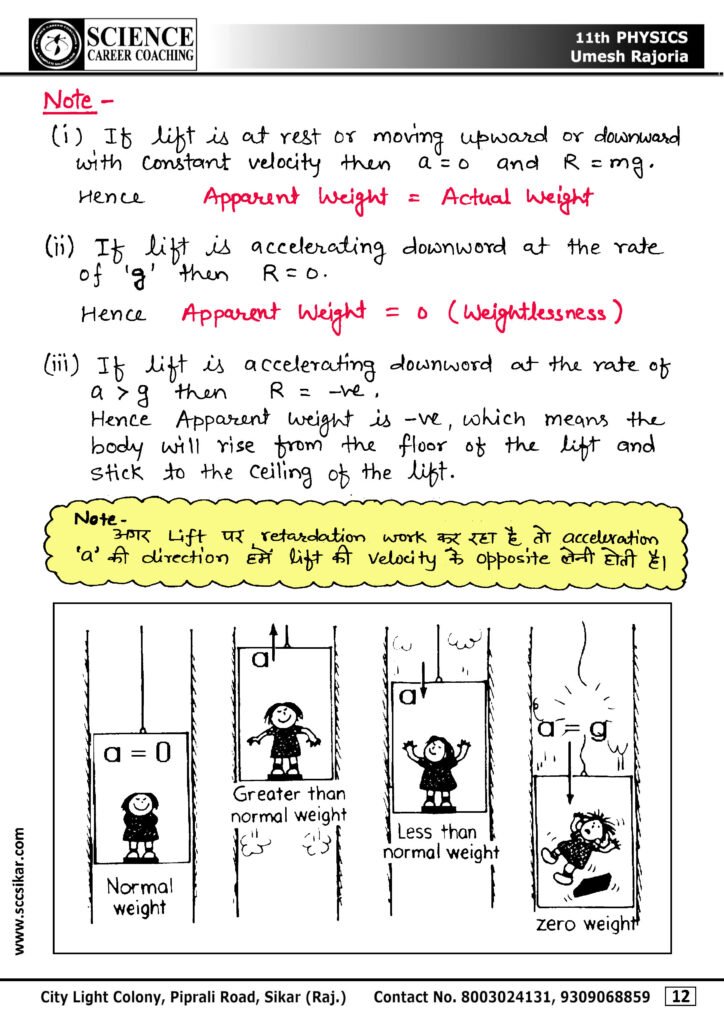 SCIENCE
CAREER COACHING
11th PHYSICS
Umesh Rajoria
Note -
(i) If lift is at rest or moving upward or downward
with constant velocity then a = 0 and R = mg.
Hence Apparent Weight = Actual Weight
(ii) If lift is accelerating downword at the rate
of 'g' then R = 0.
Hence Apparent Weight = 0 (Weightlessness)
(iii) If lift is accelerating downword at the rate of
a > g then R = -ve.
Hence Apparent weight is -ve, which means the
body will rise from the floor of the lift and
stick to the ceiling of the lift.
Note -
अगर Lift पर retardation work कर रहा है तो acceleration
'a' की direction हमें lift की velocity के opposite लेनी होती है।
a = 0
Normal
weight
a
Greater than
normal weight
a
Less than
normal weight
a = g
zero weight
www.sccsikar.com
City Light Colony, Piprali Road, Sikar (Raj.) Contact No. 8003024131, 9309068859 12